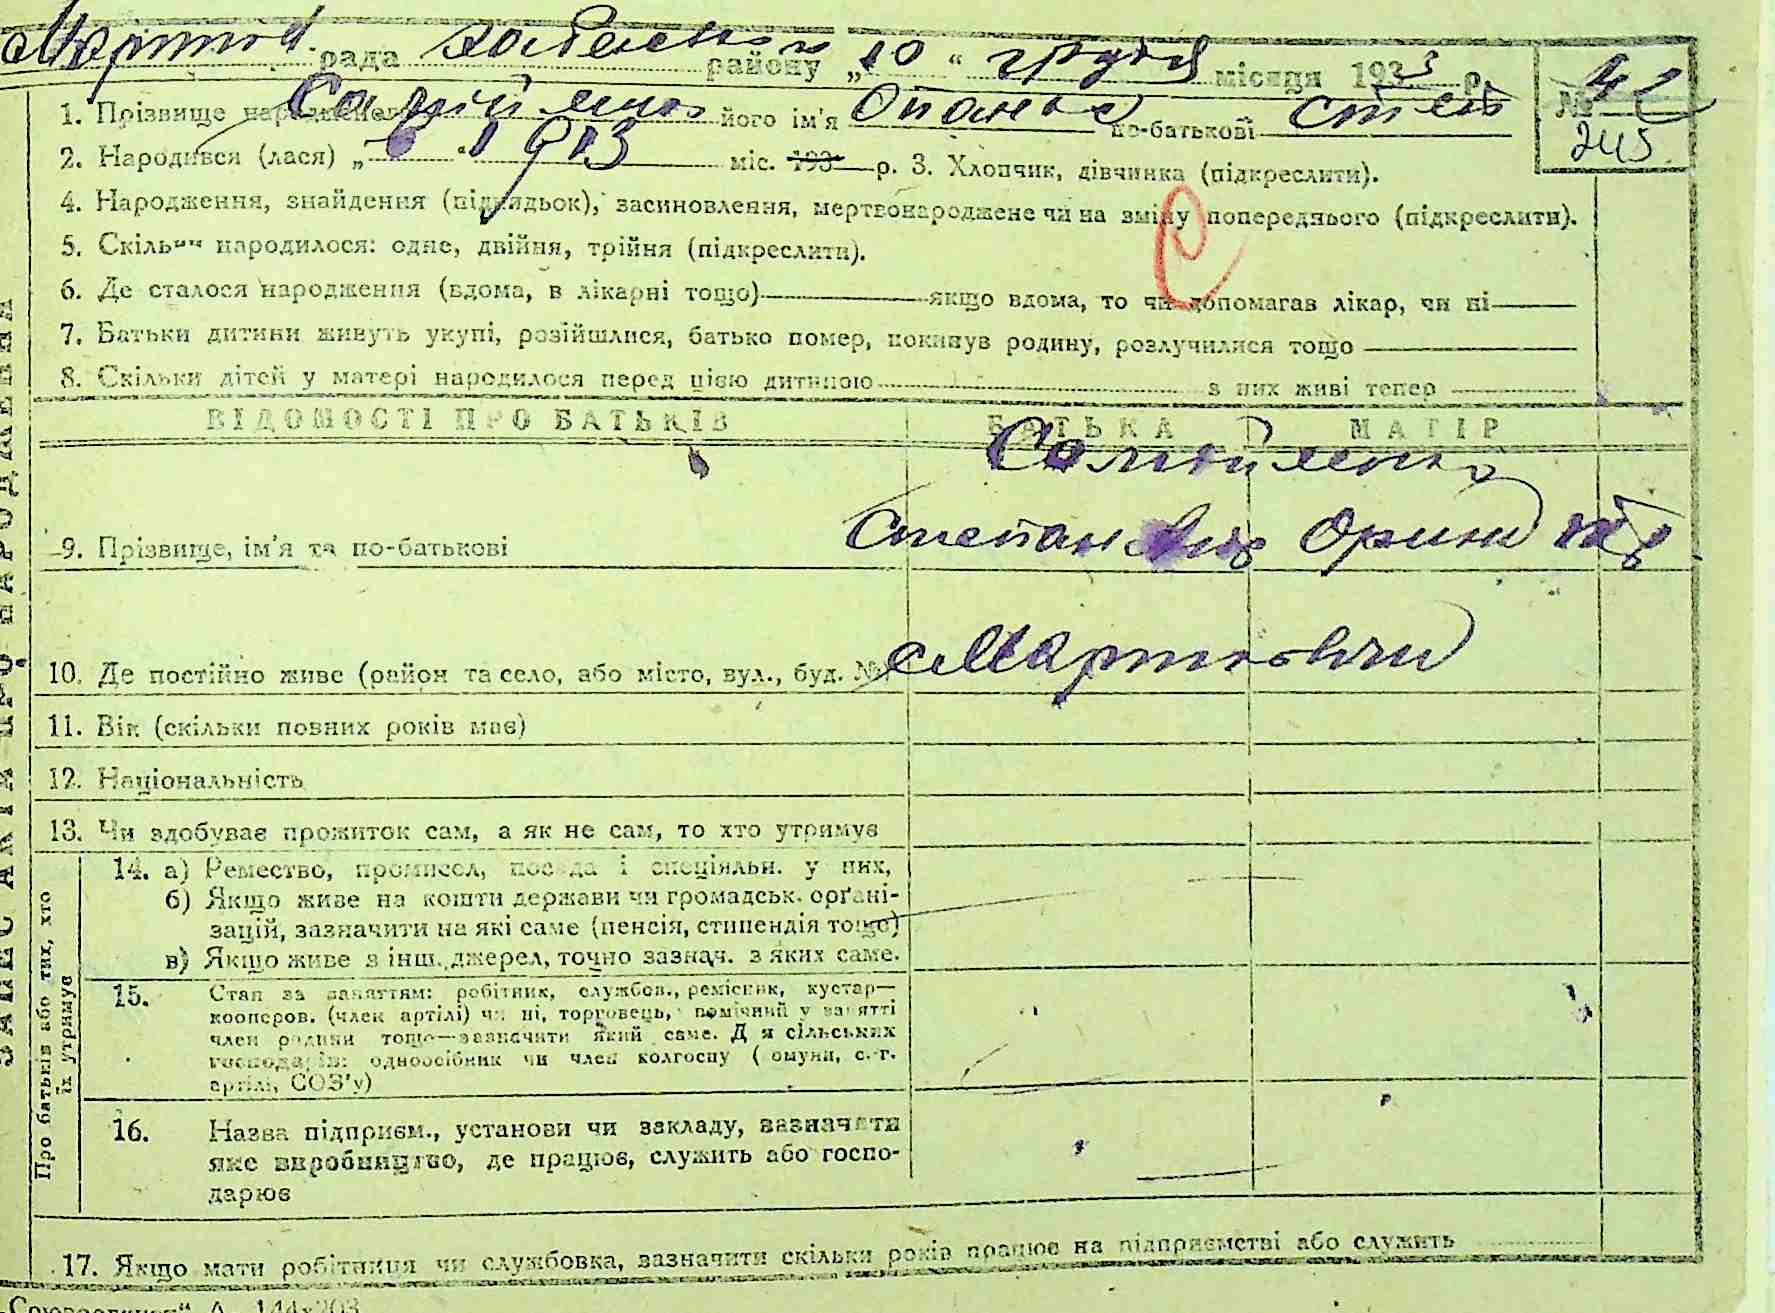 рада районУ „10“ грудня місяця 1933 р.
№ 42
245
1. Прізвище його ім'я Опанас по-батькові степ
2. Народився (лася) „6 1 1913 міс. 193 р. 3. Хлопчик, дівчинка (підкреслити).
4. Народження, знайдення (підкидьок), засиновлення, мертвонароджене чи на зміну попереднього (підкреслити).
5. Скільки народилося: одне, двійня, трійня (підкреслити).
6. Де сталося народження (вдома, в лікарні тощо) якщо вдома, то чи допомагав лікар, чи ні
7. Батьки дитини живуть укупі, розійшлися, батько помер, покинув родину, розлучилися тощо
8. Скільки дітей у матері народилося перед цією дитиною з них живі тепер
ВІДОМОСТІ ПРО БАТЬКІВ БАТЬКА МАТІР
Самойленко
9. Прізвище, ім'я та по-батькові степан Орина
10. Де постійно живе (район та село, або місто, вул., буд. № с Мартиновичи
11. Вік (скільки повних років має)
12. Національність
13. Чи здобуває прожиток сам, а як не сам, то хто утримує
Про батьків або тих, хто їх утримує
14. а) Ремество, промисел, посада і спеціяльн. у них,
б) Якщо живе на кошти держави чи громадськ. орґані-
зацій, зазначити на які саме (пенсія, стипендія тощо)
в) Якщо живе з інш. джерел, точно зазнач. з яких саме.
15. Стан за заняттям: робітник, службов., ремісник, кустар—
кооперов. (член артілі) чи ні, торговець, помічний у занятті
член родини тощо—зазначити який саме. Для сільських
господарів: одноосібник чи член колгоспу (комуни, с.-г.
артілі, СОЗ'у)
16. Назва підприєм., установи чи закладу, зазначити
яке виробництво, де працює, служить або госпо-
дарює
17. Якщо мати робітниця чи службовка, зазначити скільки років працює на підприємстві або служить
А 144х203